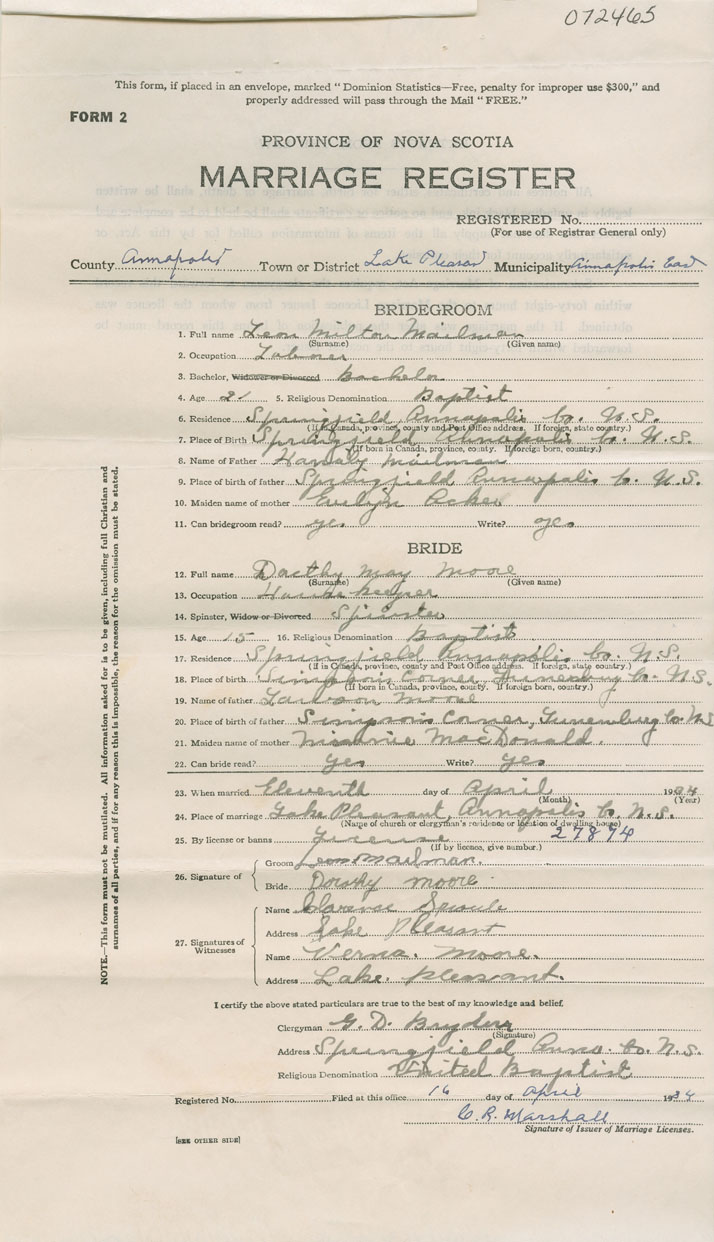 072465
This form, if placed in an envelope, marked "Dominion Statistics—Free, penalty for improper use $300," and
properly addressed will pass through the Mail "FREE."
FORM 2
PROVINCE OF NOVA SCOTIA
MARRIAGE REGISTER
REGISTERED No.
(For use of Registrar General only)
County Annapolis Town or District Lake Pleasant Municipality Annapolis East
BRIDEGROOM
1. Full name Leon Milton Mailman
(Surname) (Given name)
2. Occupation Laborer
3. Bachelor, Widower or Divorced Bachelor
4. Age 21 5. Religious Denomination Baptist
6. Residence Springfield Annapolis Co. N.S.
(If in Canada, province, county and Post Office address. If foreign, state country.)
7. Place of Birth Springfield Annapolis Co. N.S.
(If born in Canada, province, county. If foreign born, country.)
8. Name of Father Mailman
9. Place of birth of father Springfield Annapolis Co. N.S.
10. Maiden name of mother Evelyn Acker
11. Can bridegroom read? yes Write? yes
BRIDE
12. Full name May Moore
(Surname) (Given name)
13. Occupation Housekeeper
14. Spinster, Widow or Divorced Spinster
15. Age 15 16. Religious Denomination Baptist
17. Residence Springfield Annapolis Co. N.S.
(If in Canada, province, county and Post Office address. If foreign, state country.)
18. Place of birth Simpson Corner, Lunenburg Co. N.S.
(If born in Canada, province, county. If foreign born, country.)
19. Name of father Moore
20. Place of birth of father Simpson's Corner, Lunenburg Co. N.S
21. Maiden name of mother Minnie MacDonald.
22. Can bride read? yes Write? yes
23. When married Eleventh day of April 1934
(Month) (Year)
24. Place of marriage Lake Pleasant, Annapolis Co. N.S.
(Name of church or clergyman's residence or location of dwelling house)
25. By license or banns License 27874
(If by licence, give number.)
26. Signature of
Groom Leon Mailman.
Bride Dorothy Moore
27. Signatures of Witnesses
Name Clarence Sproule
Address Lake Pleasant
Name Verna. Moore.
Address Lake. Pleasant.
I certify the above stated particulars are true to the best of my knowledge and belief.
Clergyman G. D.
(Signature)
Address Springfield Anna. Co. N.S.
Religious Denomination United Baptist
Registered No. Filed at this office 16 day of April 1934
C. R. Marshall
Signature of Issuer of Marriage Licenses.
[SEE OTHER SIDE]
NOTE.—This form must not be mutilated. All information asked for is to be given, including full Christian and
surnames of all parties, and if for any reason this is impossible, the reason for the omission must be stated.